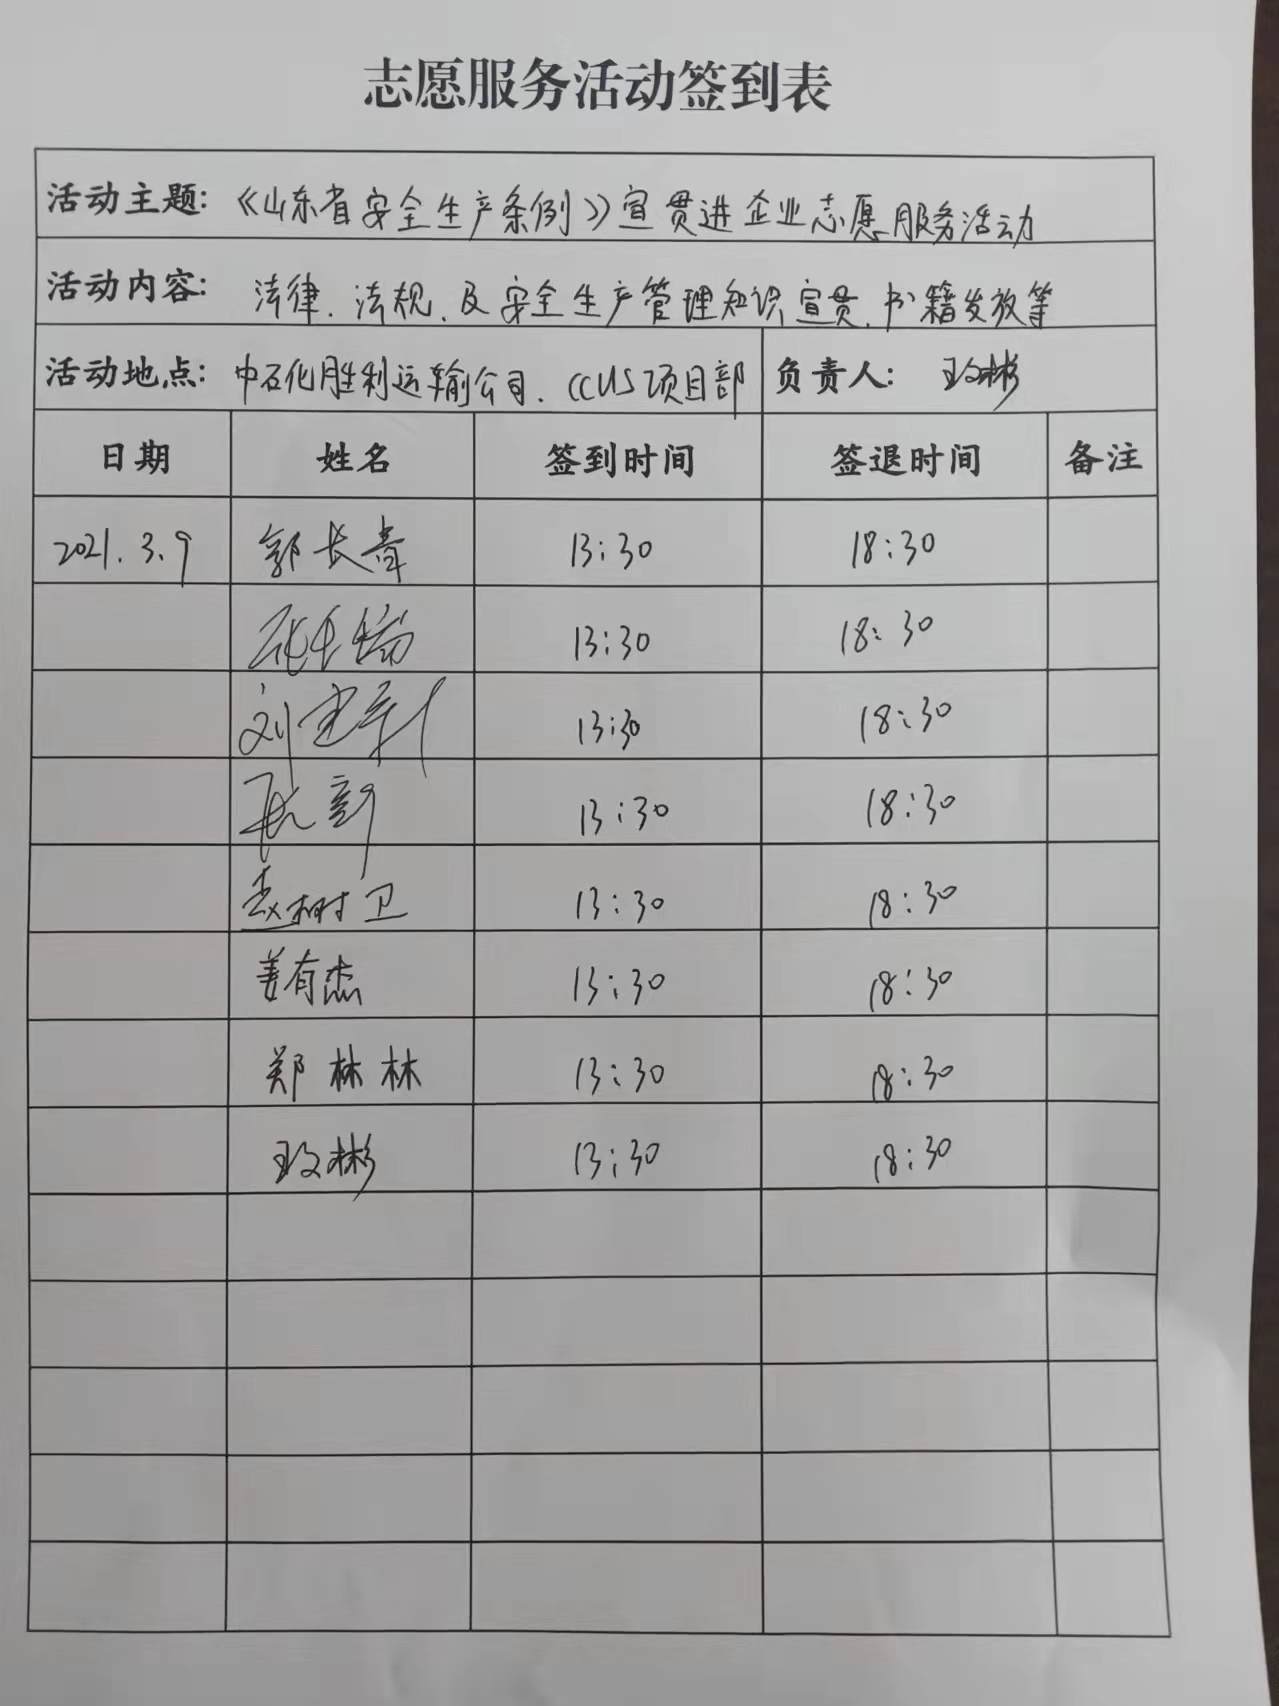 志愿服务活动签到表
活动主题:《山东省安全生产条例》宣贯进企业志愿服务活动
活动内容: 法律、法规、及安全生产管理知识宣贯、书籍发放等
活动地点: 中石化胜利运输公司、CCUS项目部 负责人:
日期 姓名 签到时间 签退时间 备注
2021.3.9 郭长青 13:30 18:30
13:30 18:30
刘建新 13:30 18:30
13:30 18:30
赵树卫 13:30 18:30
姜有杰 13:30 18:30
郑林林 13:30 18:30
13:30 18:30